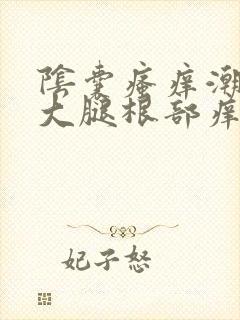 陰囊瘙痒潮
大腿根部痒
妃子怒